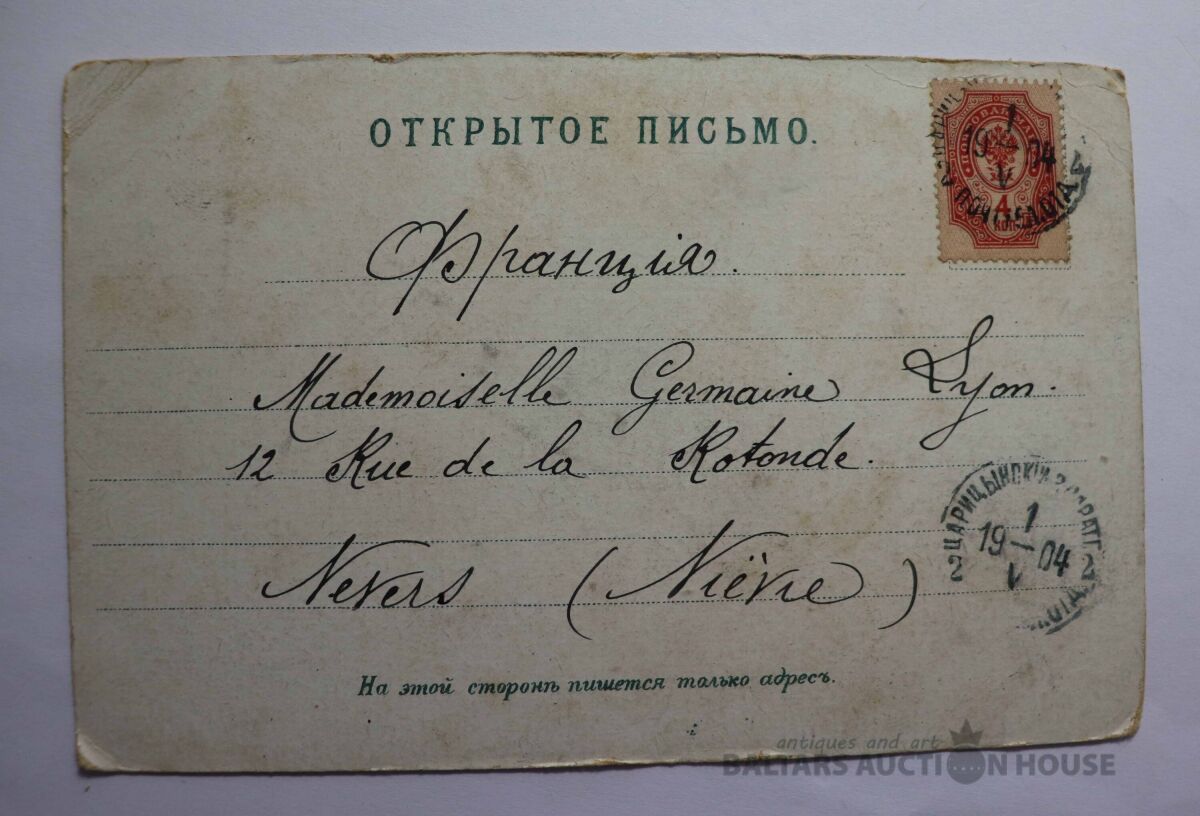 ОТКРЫТОЕ ПИСЬМО.
1
19 04
V
4
ПОЧТОВАЯ МАРКА
4
КОП
Франція.
Mademoiselle Germaine Lyon.
12 Rue de la Rotonde.
Nevers (Nièvre)
ЦАРИЦЫНСКІЙ
1
19 04
V
2 2
На этой сторонѣ пишется только адресъ.
antiques and art
BALTARS AUCTION HOUSE